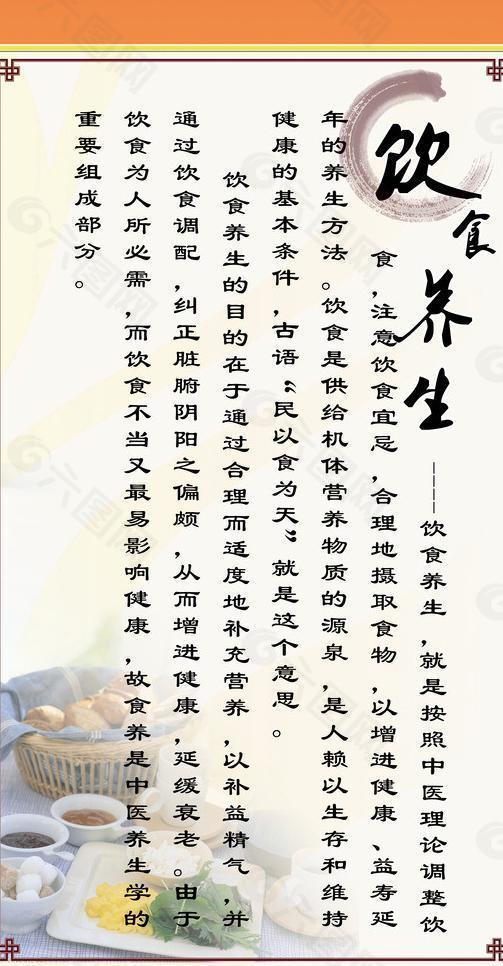 饮食养生
————饮食养生，就是按照中医理论调整饮
食，注意饮食宜忌，合理地摄取食物，以增进健康、益寿延
年的养生方法。饮食是供给机体营养物质的源泉，是人赖以生存和维持
健康的基本条件，古语“民以食为天”就是这个意思。
饮食养生的目的在于通过合理而适度地补充营养，以补益精气，并
通过饮食调配，纠正脏腑阴阳之偏颇，从而增进健康，延缓衰老。由于
饮食为人所必需，而饮食不当又最易影响健康，故食养是中医养生学的
重要组成部分。
六图网